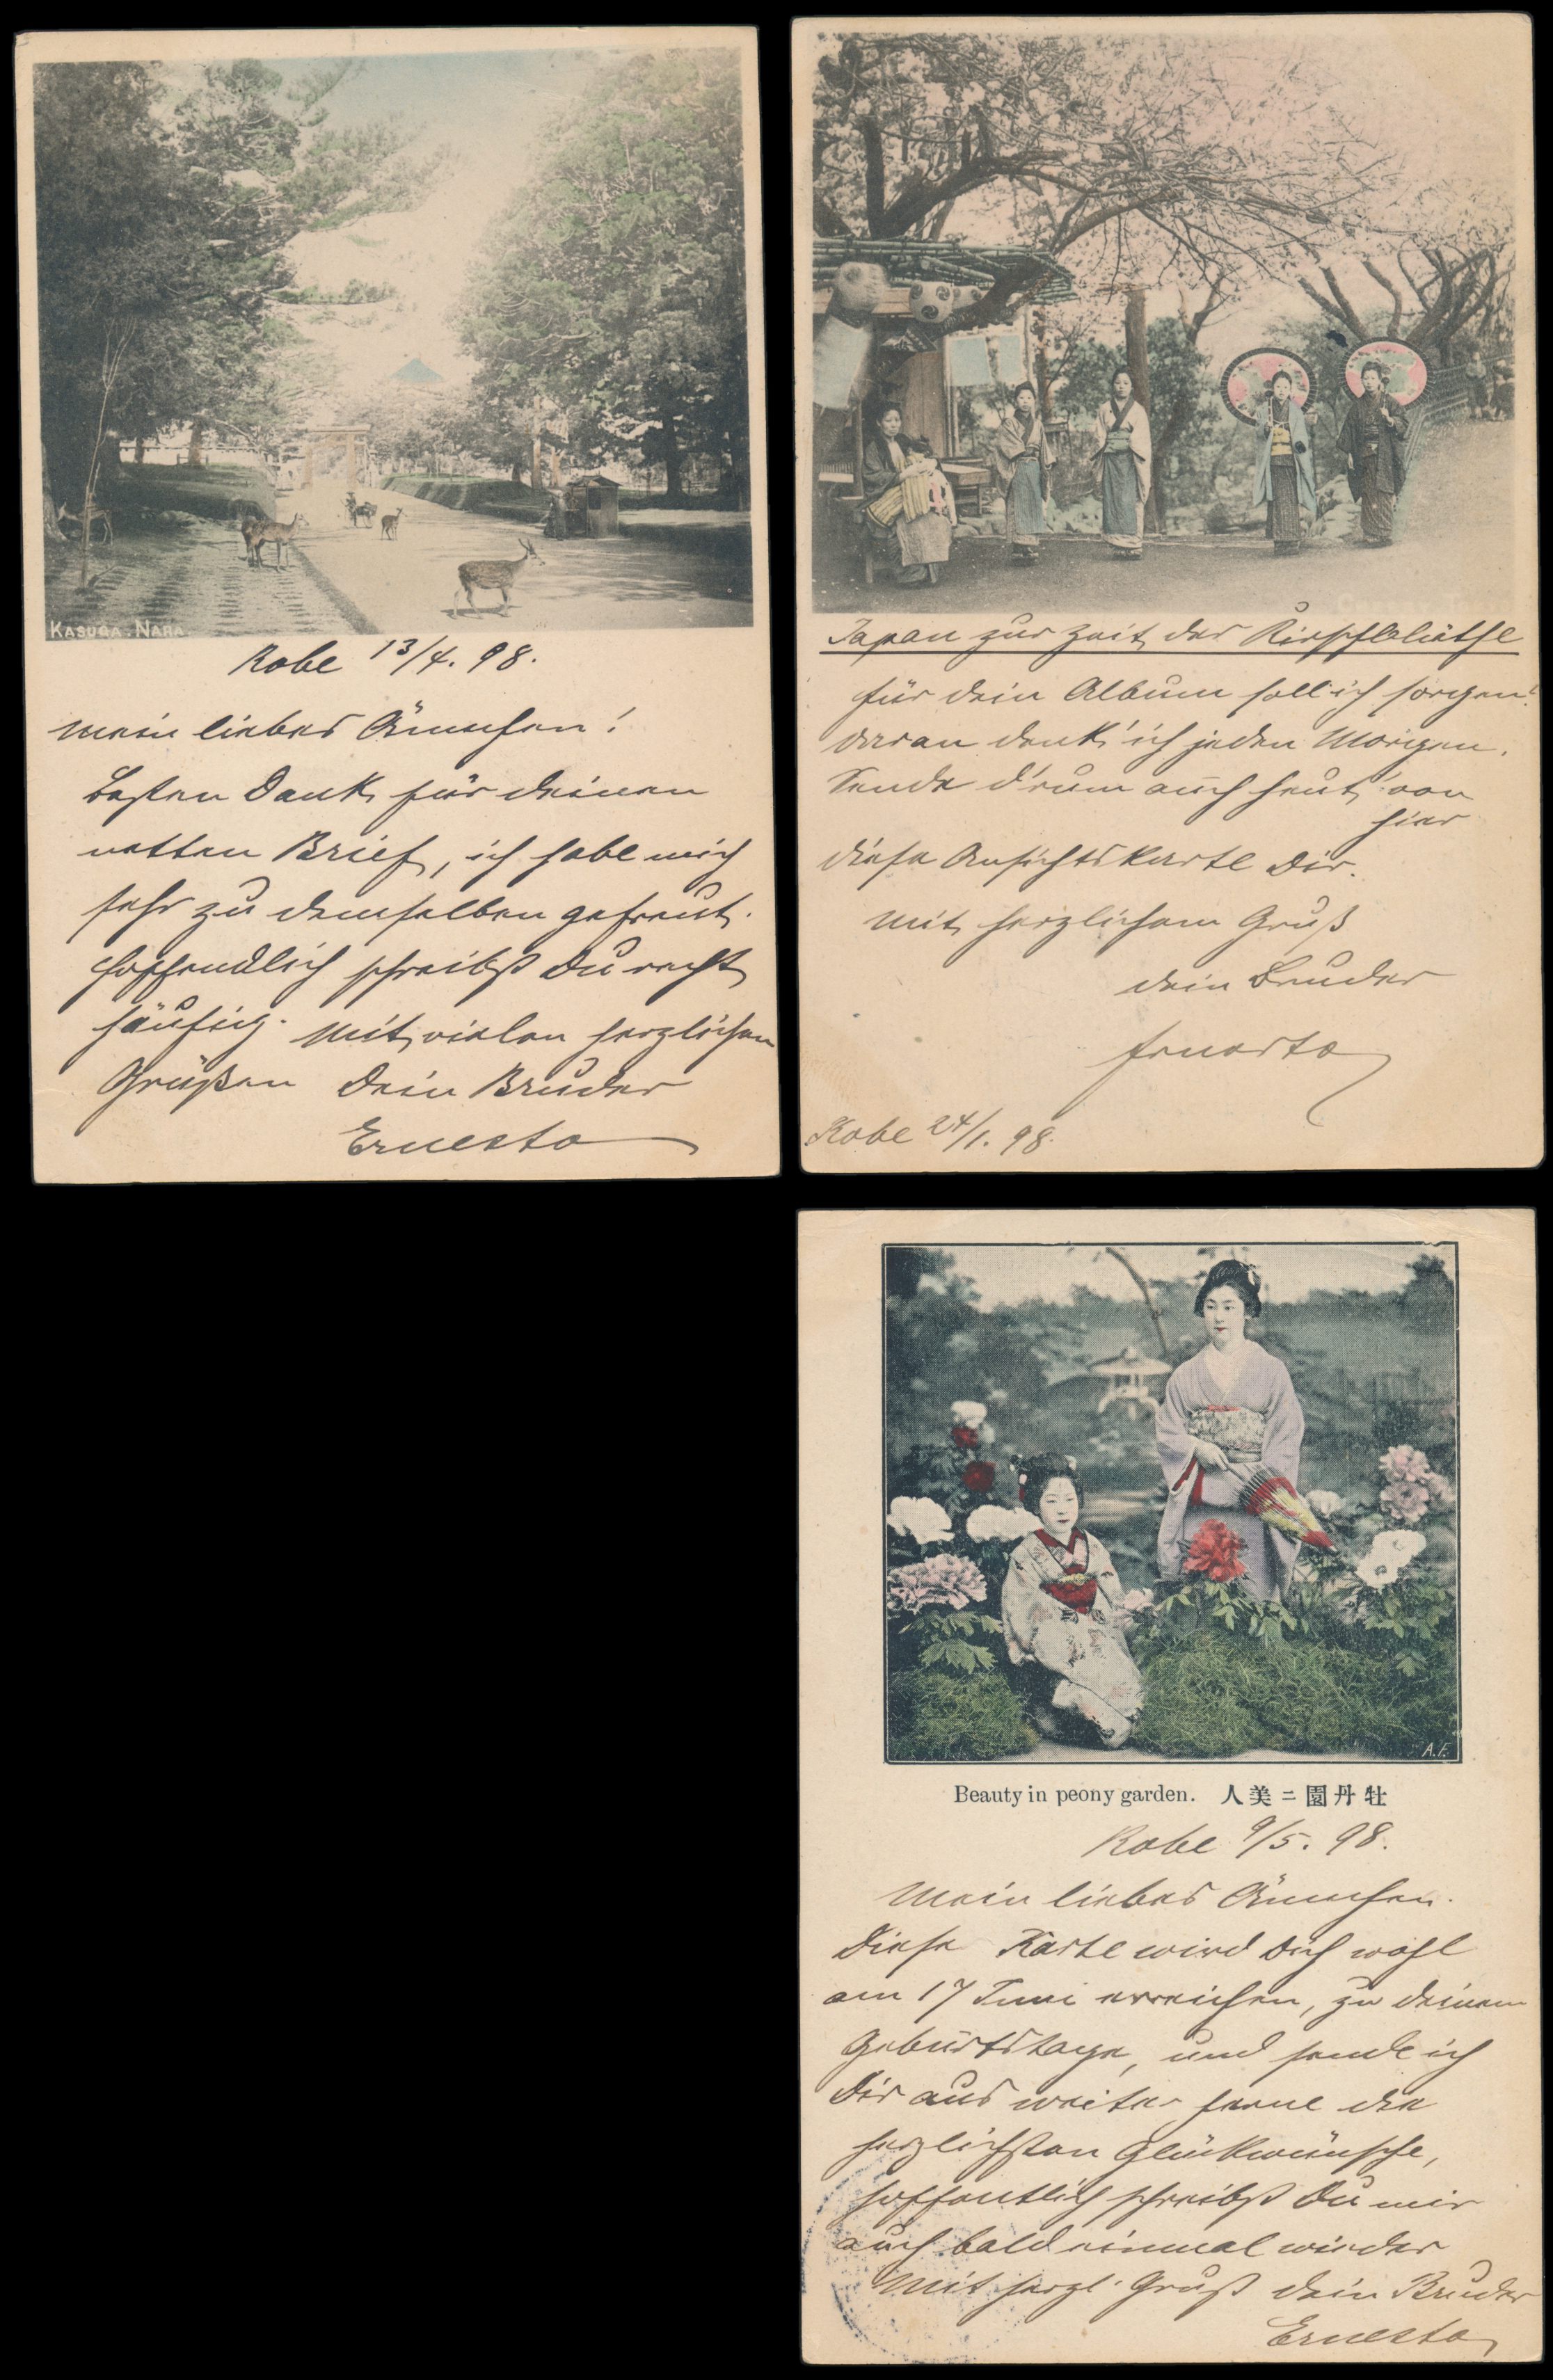 KASUGA. NARA
Kobe 13/4. 98.
Mein liebes Ännchen!
Besten Dank für deinen
netten Brief, ich habe mich
sehr zu demselben gefreut.
Hoffendlich schreibst Du recht
häufig. Mit vielen herzlichen
Grüßen Dein Bruder
Ernesto
Japan zur Zeit der Kirschblüthe
für dein Album soll ich sorgen!
daran denk' ich jeden Morgen.
Sende d'rum auch heut' von
hier
diese Ansichtskarte Dir.
Mit herzlichem Gruß
dein Bruder
Ernesto
Kobe 24/1. 98.
A.F.
Beauty in peony garden. 人美ニ園丹牡
Kobe 9/5. 98.
Mein liebes Ännchen.
Diese Karte wird Dich wohl
am 17 Juni erreichen, zu deinem
Geburtstage, und sende ich
Dir aus weiter ferne die
herzlichsten Glückwünsche,
hoffentlich schreibst Du mir
auch bald einmal wieder
Mit herzl. Gruß dein Bruder
Ernesto